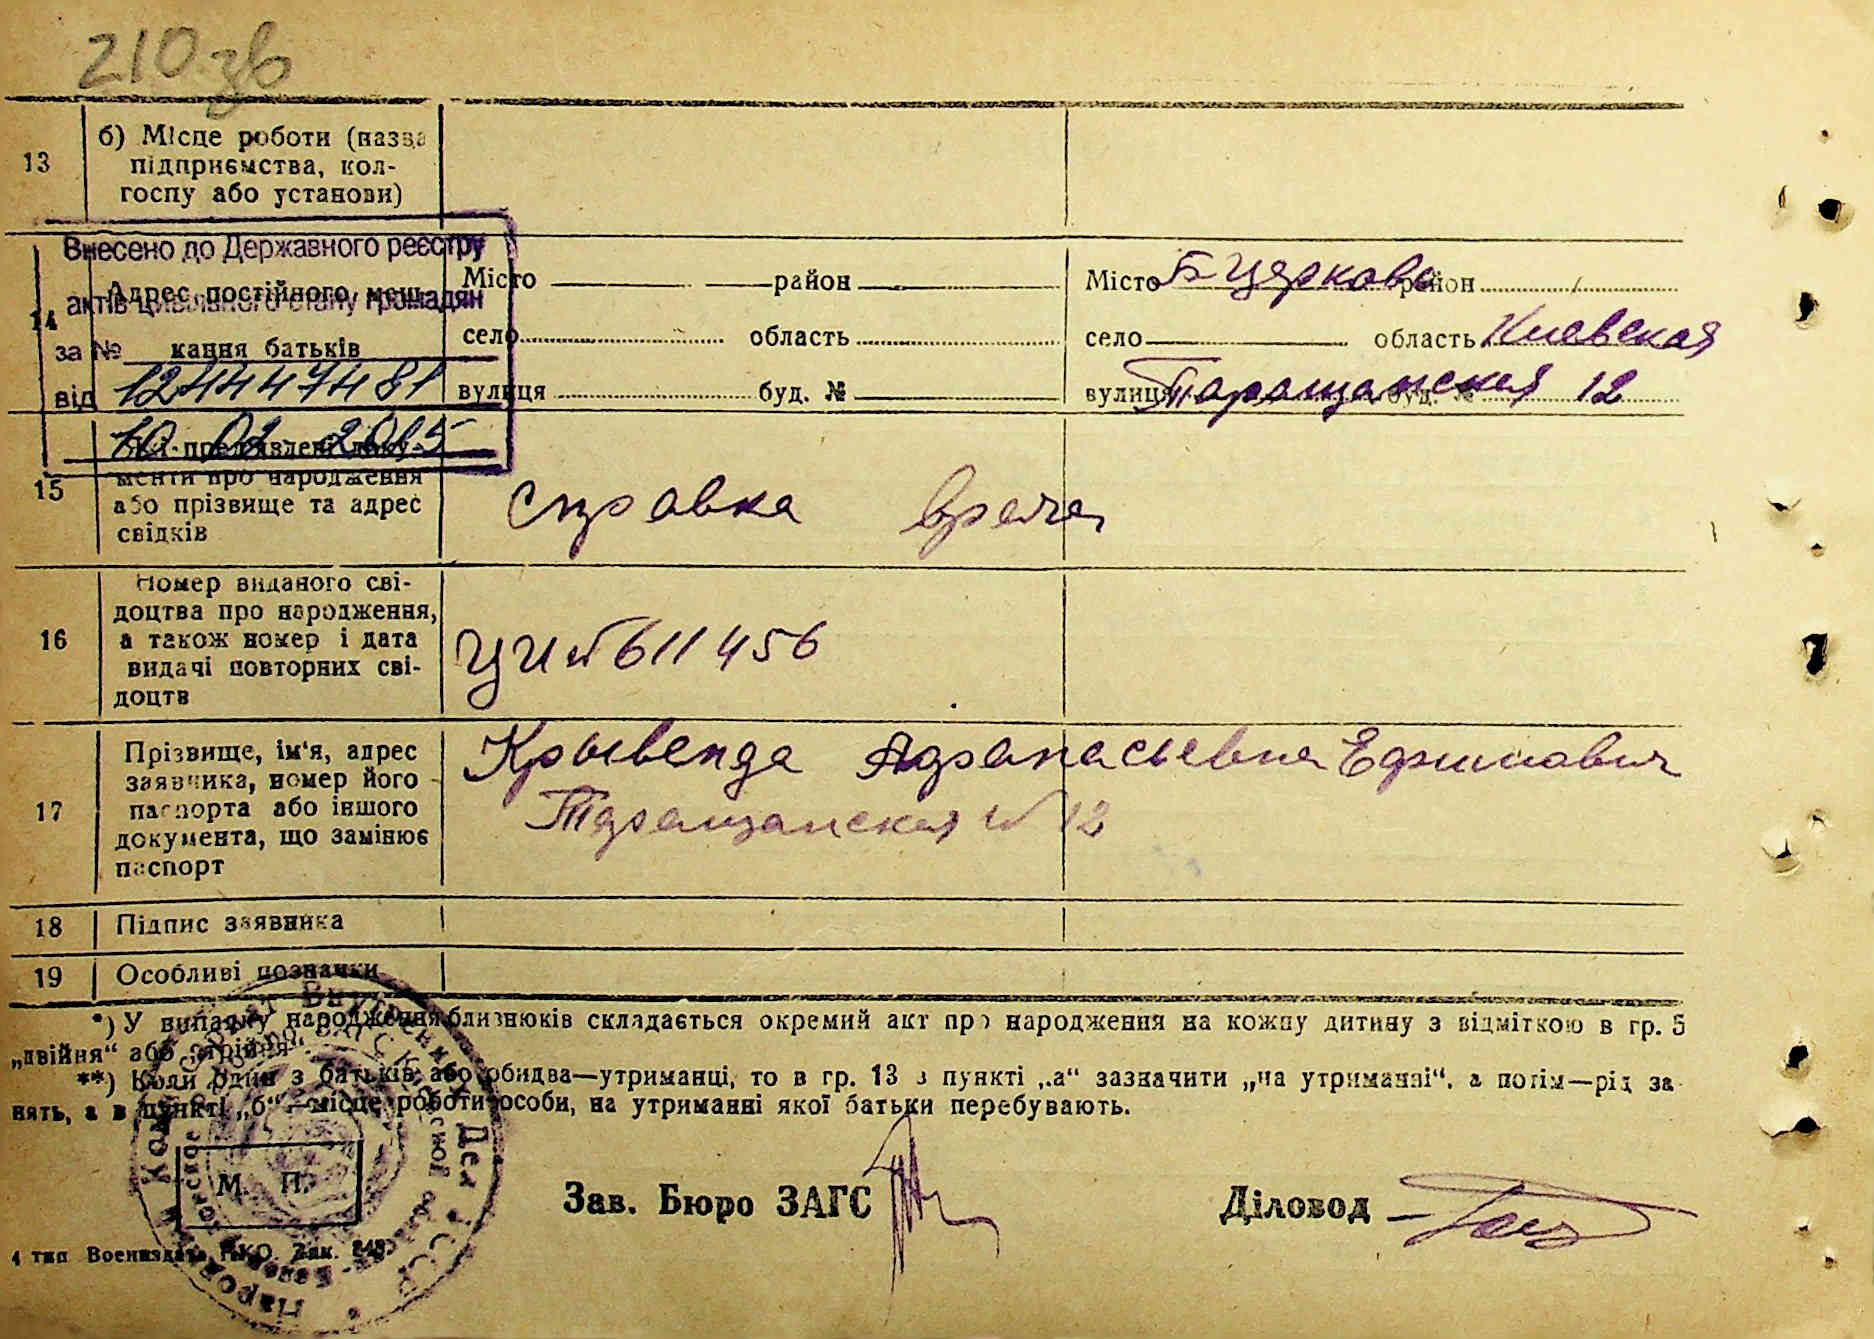 210 зв
13
б) Місце роботи (назва
підприємства, кол-
госпу або установи)
Внесено до Державного реєстру
актів цивільного стану громадян
за №
від 1244447481
10 02 2015
14
Адрес постійного меш-
кання батьків
Місто район
село область
вулиця буд. №
Місто Б Церковь район
село область Киевская
вулиця Таращанская буд. № 12
15
менти про народження
або прізвище та адрес
свідків
справка врача
16
Номер виданого сві-
доцтва про народження,
а також номер і дата
видачі повторних сві-
доцтв
611456
17
Прізвище, ім'я, адрес
заявника, номер його
паспорта або іншого
документа, що замінює
паспорт
Таращанская № 12
18
Підпис заявника
19
Особливі позначки
*) У випадку народження близнюків складається окремий акт про народження на кожну дитину з відміткою в гр. 5
„двійня“ або „трійня“.
**) Коли один з батьків або обидва—утриманці, то в гр. 13 в пункті „а“ зазначити „на утриманні“, а потім—рід за-
нять, а в пункті „б“—місце роботи особи, на утриманні якої батьки перебувають.
М. П.
Зав. Бюро ЗАГС
Діловод
4 тип Воениздата НКО. Зак.